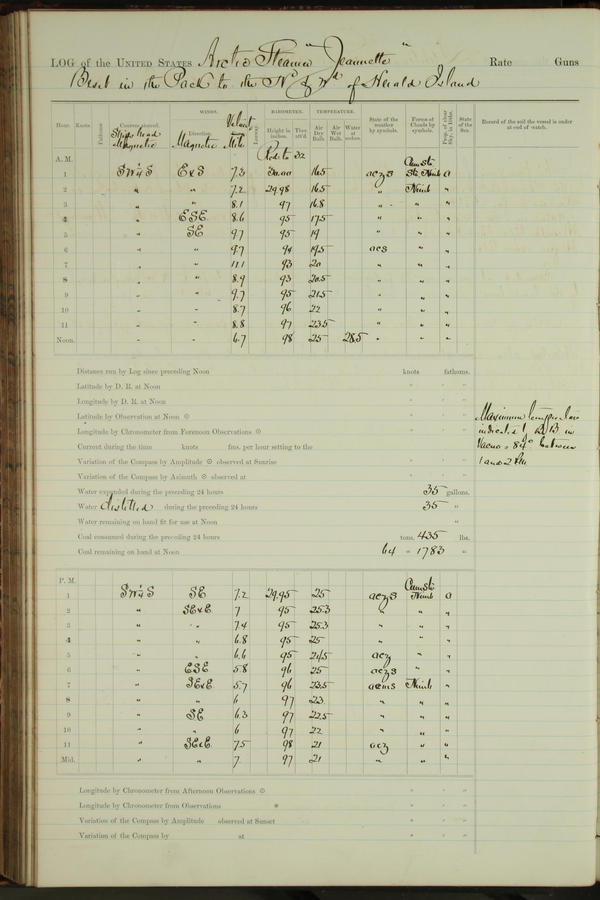 LOG of the UNITED STATES Arctic Steamer "Jeannette" Rate Guns
Beset in the Pack to the Nd & Wd of Herald Island
WINDS. BAROMETER. TEMPERATURE.
Hour. Knots. Fathoms. Courses steered. Direction. Velocity Leeway. Height in inches. Ther. att'd. Air Dry Bulb. Air Wet Bulb. Water at surface. State of the weather by symbols. Forms of Clouds by symbols. Prop. of clear Sky, in 10ths. State of the Sea. Record of the sail the vessel is under at end of watch.
Ship's head Magnetic Magnetic
A. M. Rode to 32 Cum Stc
1 E x S 7.3 30.00 16.5 aczs Stc Nimb 0
2 " " 7.2 29.98 16.5 " Nimb "
3 " " 8.1 97 16.8 " " "
4 " ESE 8.6 95 17.5 " " "
5 " SE 9.7 95 19 " " "
6 " " 9.7 94 19.5 acs " "
7 " " 11.1 93 20 " " "
8 " " 8.9 93 20.5 " " "
9 " " 9.7 95 21.5 " " "
10 " " 8.7 96 22 " " "
11 " " 8.8 97 23.5 " " "
Noon. " " 6.7 98 25 28.5 " " "
Distance run by Log since preceding Noon knots fathoms.
Latitude by D. R. at Noon " ' "
Longitude by D. R. at Noon " ' "
Latitude by Observation at Noon ☉ " ' "
Longitude by Chronometer from Forenoon Observations ☉ " ' "
Current during the time knots fms. per hour setting to the
Variation of the Compass by Amplitude ☉ observed at Sunrise " ' "
Variation of the Compass by Azimuth ☉ observed at " ' "
Water expended during the preceding 24 hours 35 gallons.
Water distilled during the preceding 24 hours 35 "
Water remaining on hand fit for use at Noon "
Coal consumed during the preceding 24 hours tons, 435 lbs.
Coal remaining on hand at Noon 64 " 1783 "
Maximum temperature
indicated by B B in
Vacuo = 84° between
1 and 2 PM
P. M. Cum Stc
1 SE 7.2 29.95 25 aczs Nimb 0
2 " SExE 7 95 25.3 " " "
3 " " 7.4 95 25.3 " " "
4 " " 6.8 95 25 " " "
5 " " 6.6 95 24.5 acz " "
6 " ESE 5.8 96 25 aczs " "
7 " SExE 5.7 96 23.5 acms Nimb "
8 " " 6 97 23 " " "
9 " SE 6.3 97 22.5 " " "
10 " " 6 97 22 " " "
11 " SExE 7.5 98 21 acz " "
Mid. " " 7 97 21 " " "
Longitude by Chronometer from Afternoon Observations ☉ " ' "
Longitude by Chronometer from Observations * " ' "
Variation of the Compass by Amplitude observed at Sunset " ' "
Variation of the Compass by at " ' "